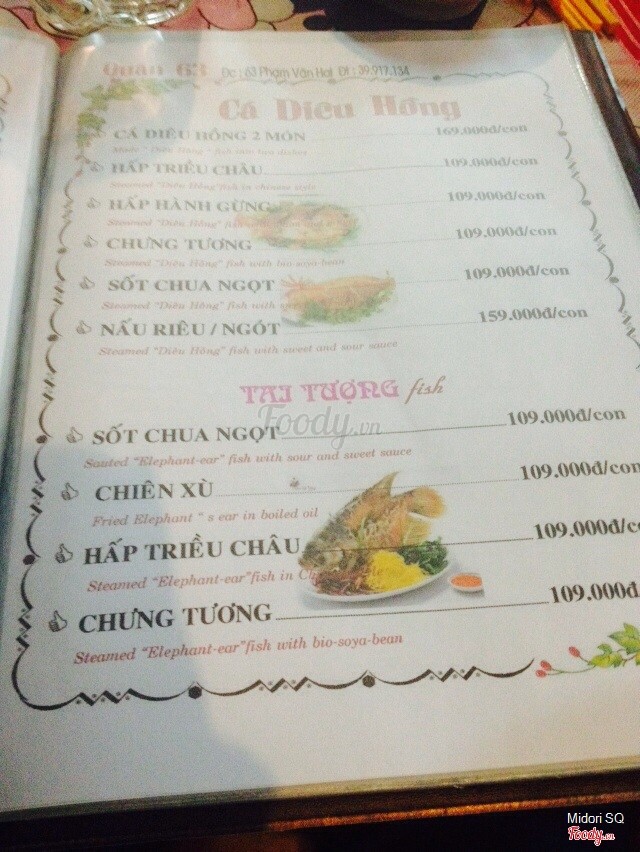 Quán 63 Đc : 63 Phạm Văn Hai ĐT : 39.917.134
Cá Diêu Hồng
CÁ DIÊU HỒNG 2 MÓN 169.000đ/con
Made " Diêu Hồng " fish into two dishes
HẤP TRIỀU CHÂU 109.000đ/con
Steamed "Diêu Hồng" fish in chinese style
HẤP HÀNH GỪNG 109.000đ/con
Steamed "Diêu Hồng" fish
CHƯNG TƯƠNG 109.000đ/con
Steamed "Diêu Hồng" fish with bio-soya-bean
SỐT CHUA NGỌT 109.000đ/con
Steamed "Diêu Hồng" fish with
NẤU RIÊU / NGÓT 159.000đ/con
Steamed "Diêu Hồng" fish with sweet and sour sauce
TAI TƯỢNG fish
Foody.vn
SỐT CHUA NGỌT 109.000đ/con
Sauted "Elephant-ear" fish with sour and sweet sauce
CHIÊN XÙ 109.000đ/con
Fried Elephant " s ear in boiled oil
HẤP TRIỀU CHÂU 109.000đ/co
Steamed "Elephant-ear"fish in Ch
CHƯNG TƯƠNG 109.000đ
Steamed "Elephant-ear"fish with bio-soya-bean
Midori SQ
Foody.vn